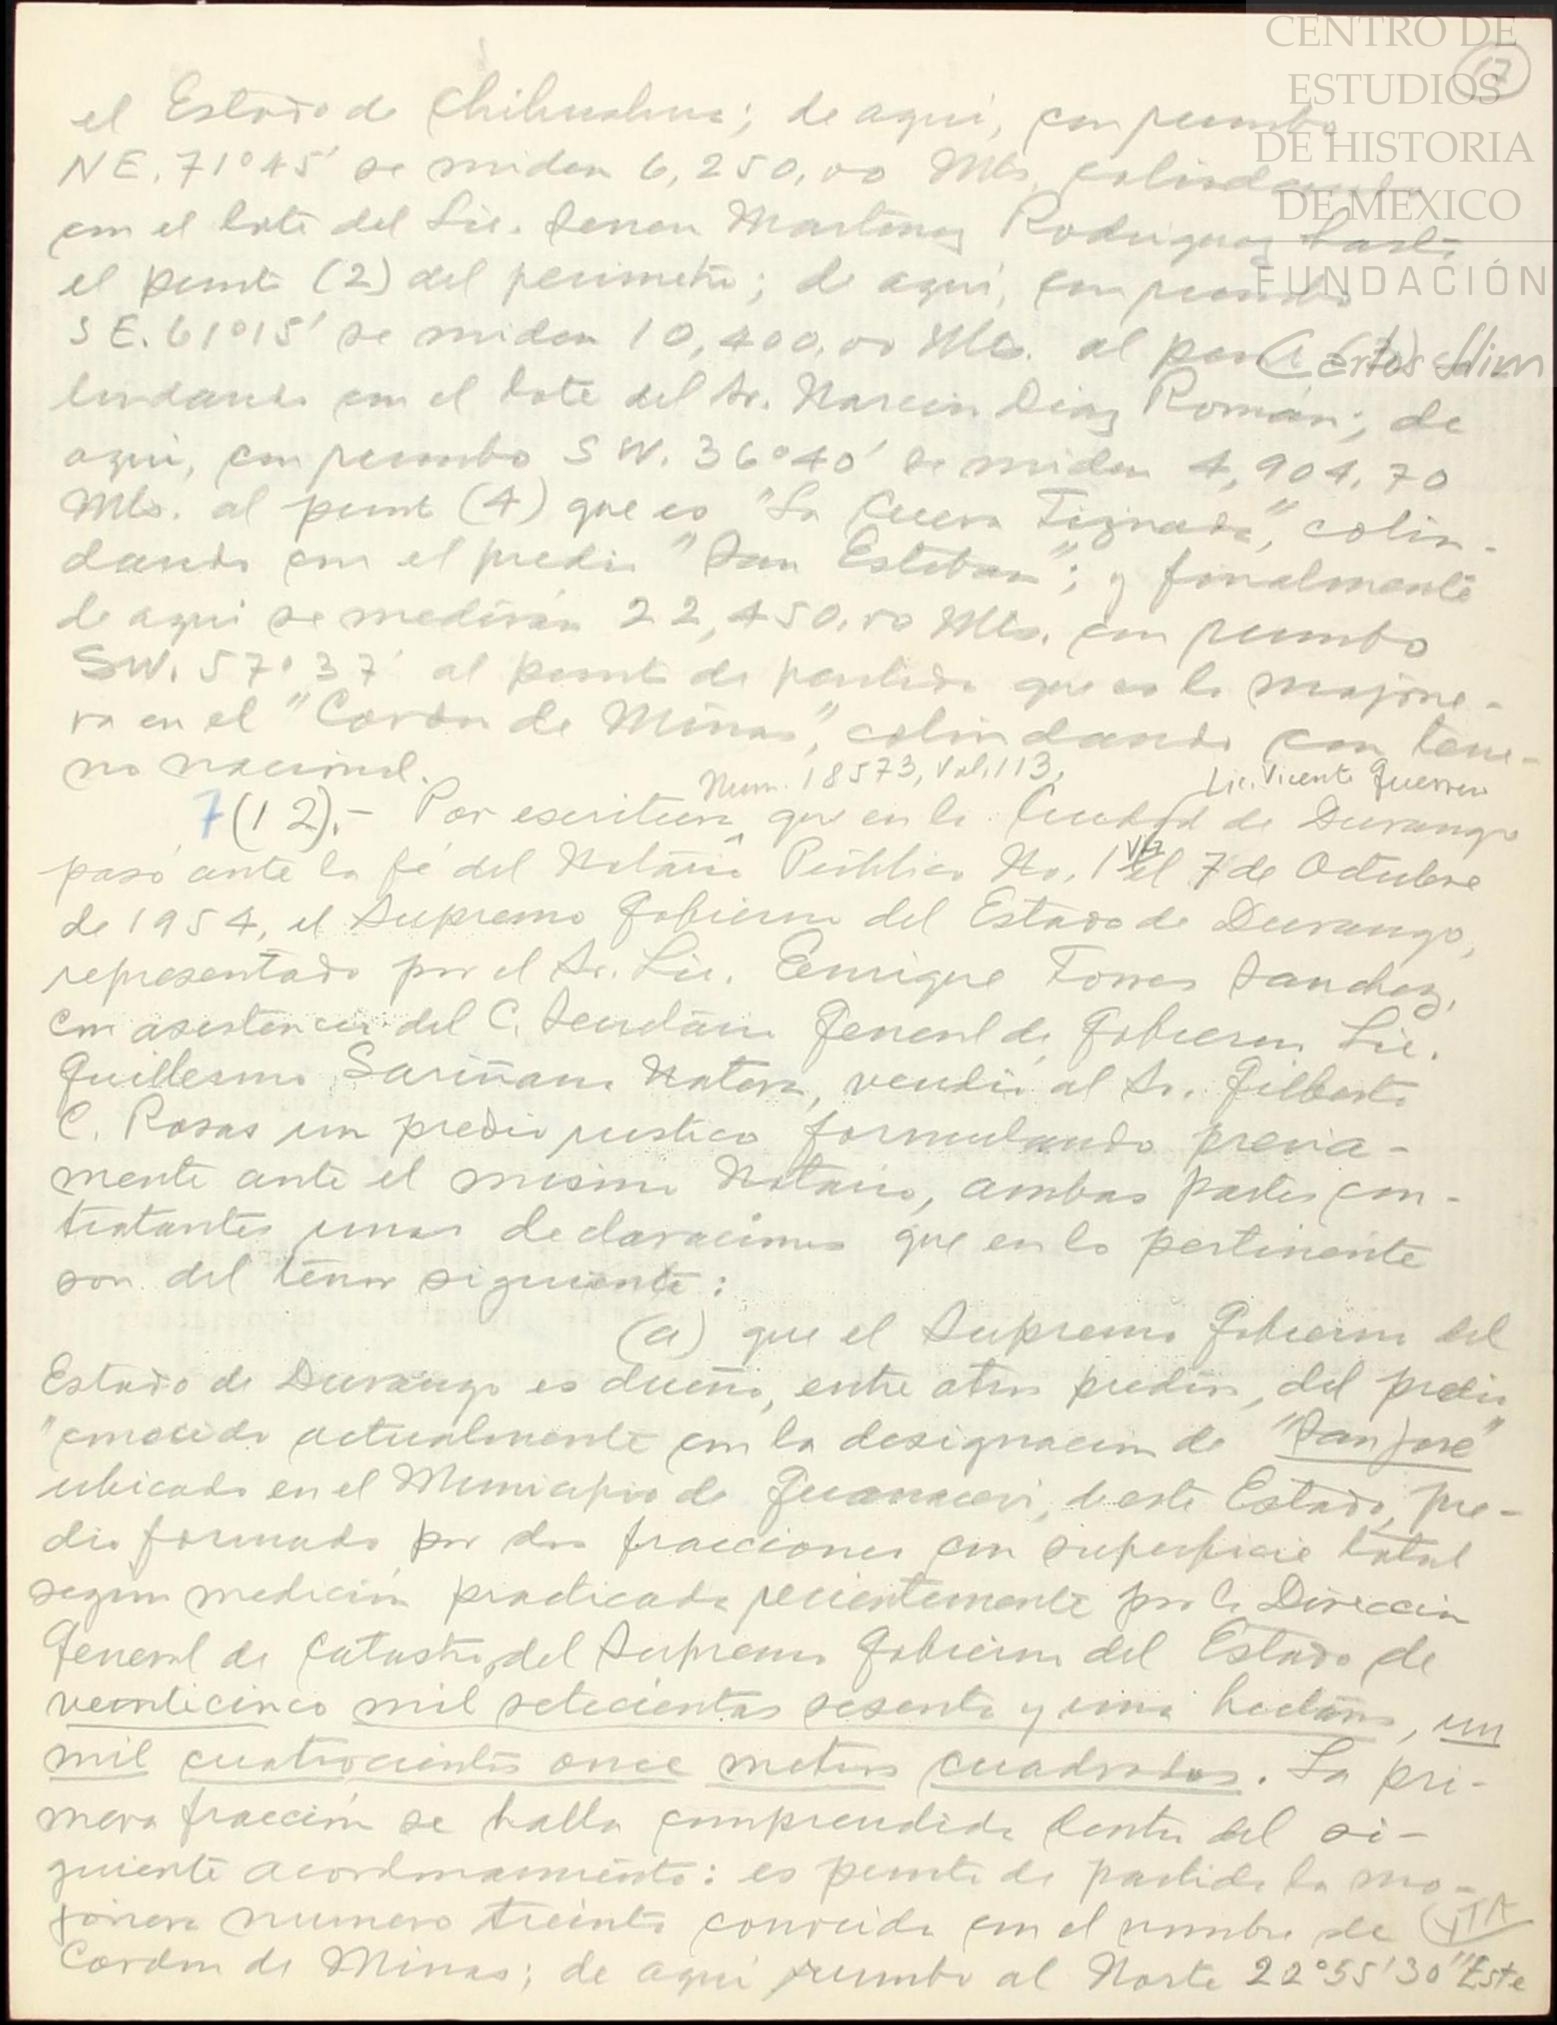 CENTRO DE
ESTUDIOS
DE HISTORIA
DE MEXICO
FUNDACIÓN
Carlos Slim
17
el Estado de Chihuahua; de aqui, con rumbo
NE. 71°45' se miden 6,250.00 Mts. colindando
con el lote del Lic. Zenon Martinez Rodriguez hasta
el punto (2) del perimetro; de aqui, con rumbo
SE. 61°15' se miden 10,400.00 Mts. al punto (3) co
lindando con el lote del Sr. Narciso Diaz Román; de
aqui, con rumbo SW. 36°40' se miden 4,904.70
Mts. al punto (4) que es "La Cueva Tiznada", colin-
dando con el predio "San Esteban"; y finalmente
de aqui se medirán 22,450.00 Mts. con rumbo
SW. 57°37' al punto de partida que es la mojone-
ra en el "Cordon de Minas", colindando con terre-
no nacional.
Num. 18573, Vol. 113, Lic. Vicente Guerrero
7 (12).- Por escritura que en la Ciudad de Durango
pasó ante la fé del Notario Público No. 1 el 7 de Octubre
de 1954, el Supremo Gobierno del Estado de Durango,
representado por el Sr. Lic. Enrique Torres Sanchez,
con asistencia del C. Secretario General de Gobierno Lic.
Guillermo Sariñana Natera, vendió al Sr. Gilberto
C. Rosas un predio rustico formulando previa-
mente ante el mismo Notario, ambas partes con-
tratantes unas declaraciones que en lo pertinente
son del tenor siguiente:
(a) que el Supremo Gobierno del
Estado de Durango es dueño, entre otros predios, del predio
"conocido actualmente con la designacion de "San José"
ubicado en el Municipio de Guanacevi, de este Estado, pre-
dio formado por dos fracciones con superficie total
segun medición practicada recientemente por la Direccion
General de Catastro, del Supremo Gobierno del Estado de
veinticinco mil setecientas sesenta y una hectáreas, un
mil cuatrocientos once metros cuadrados. La pri-
mera fracción se halla comprendida dentro del si-
guiente acordonamiento: es punto de partida la mo-
jonera numero treinta conocida con el nombre de
Cordon de Minas; de aqui rumbo al Norte 22°55'30" Este